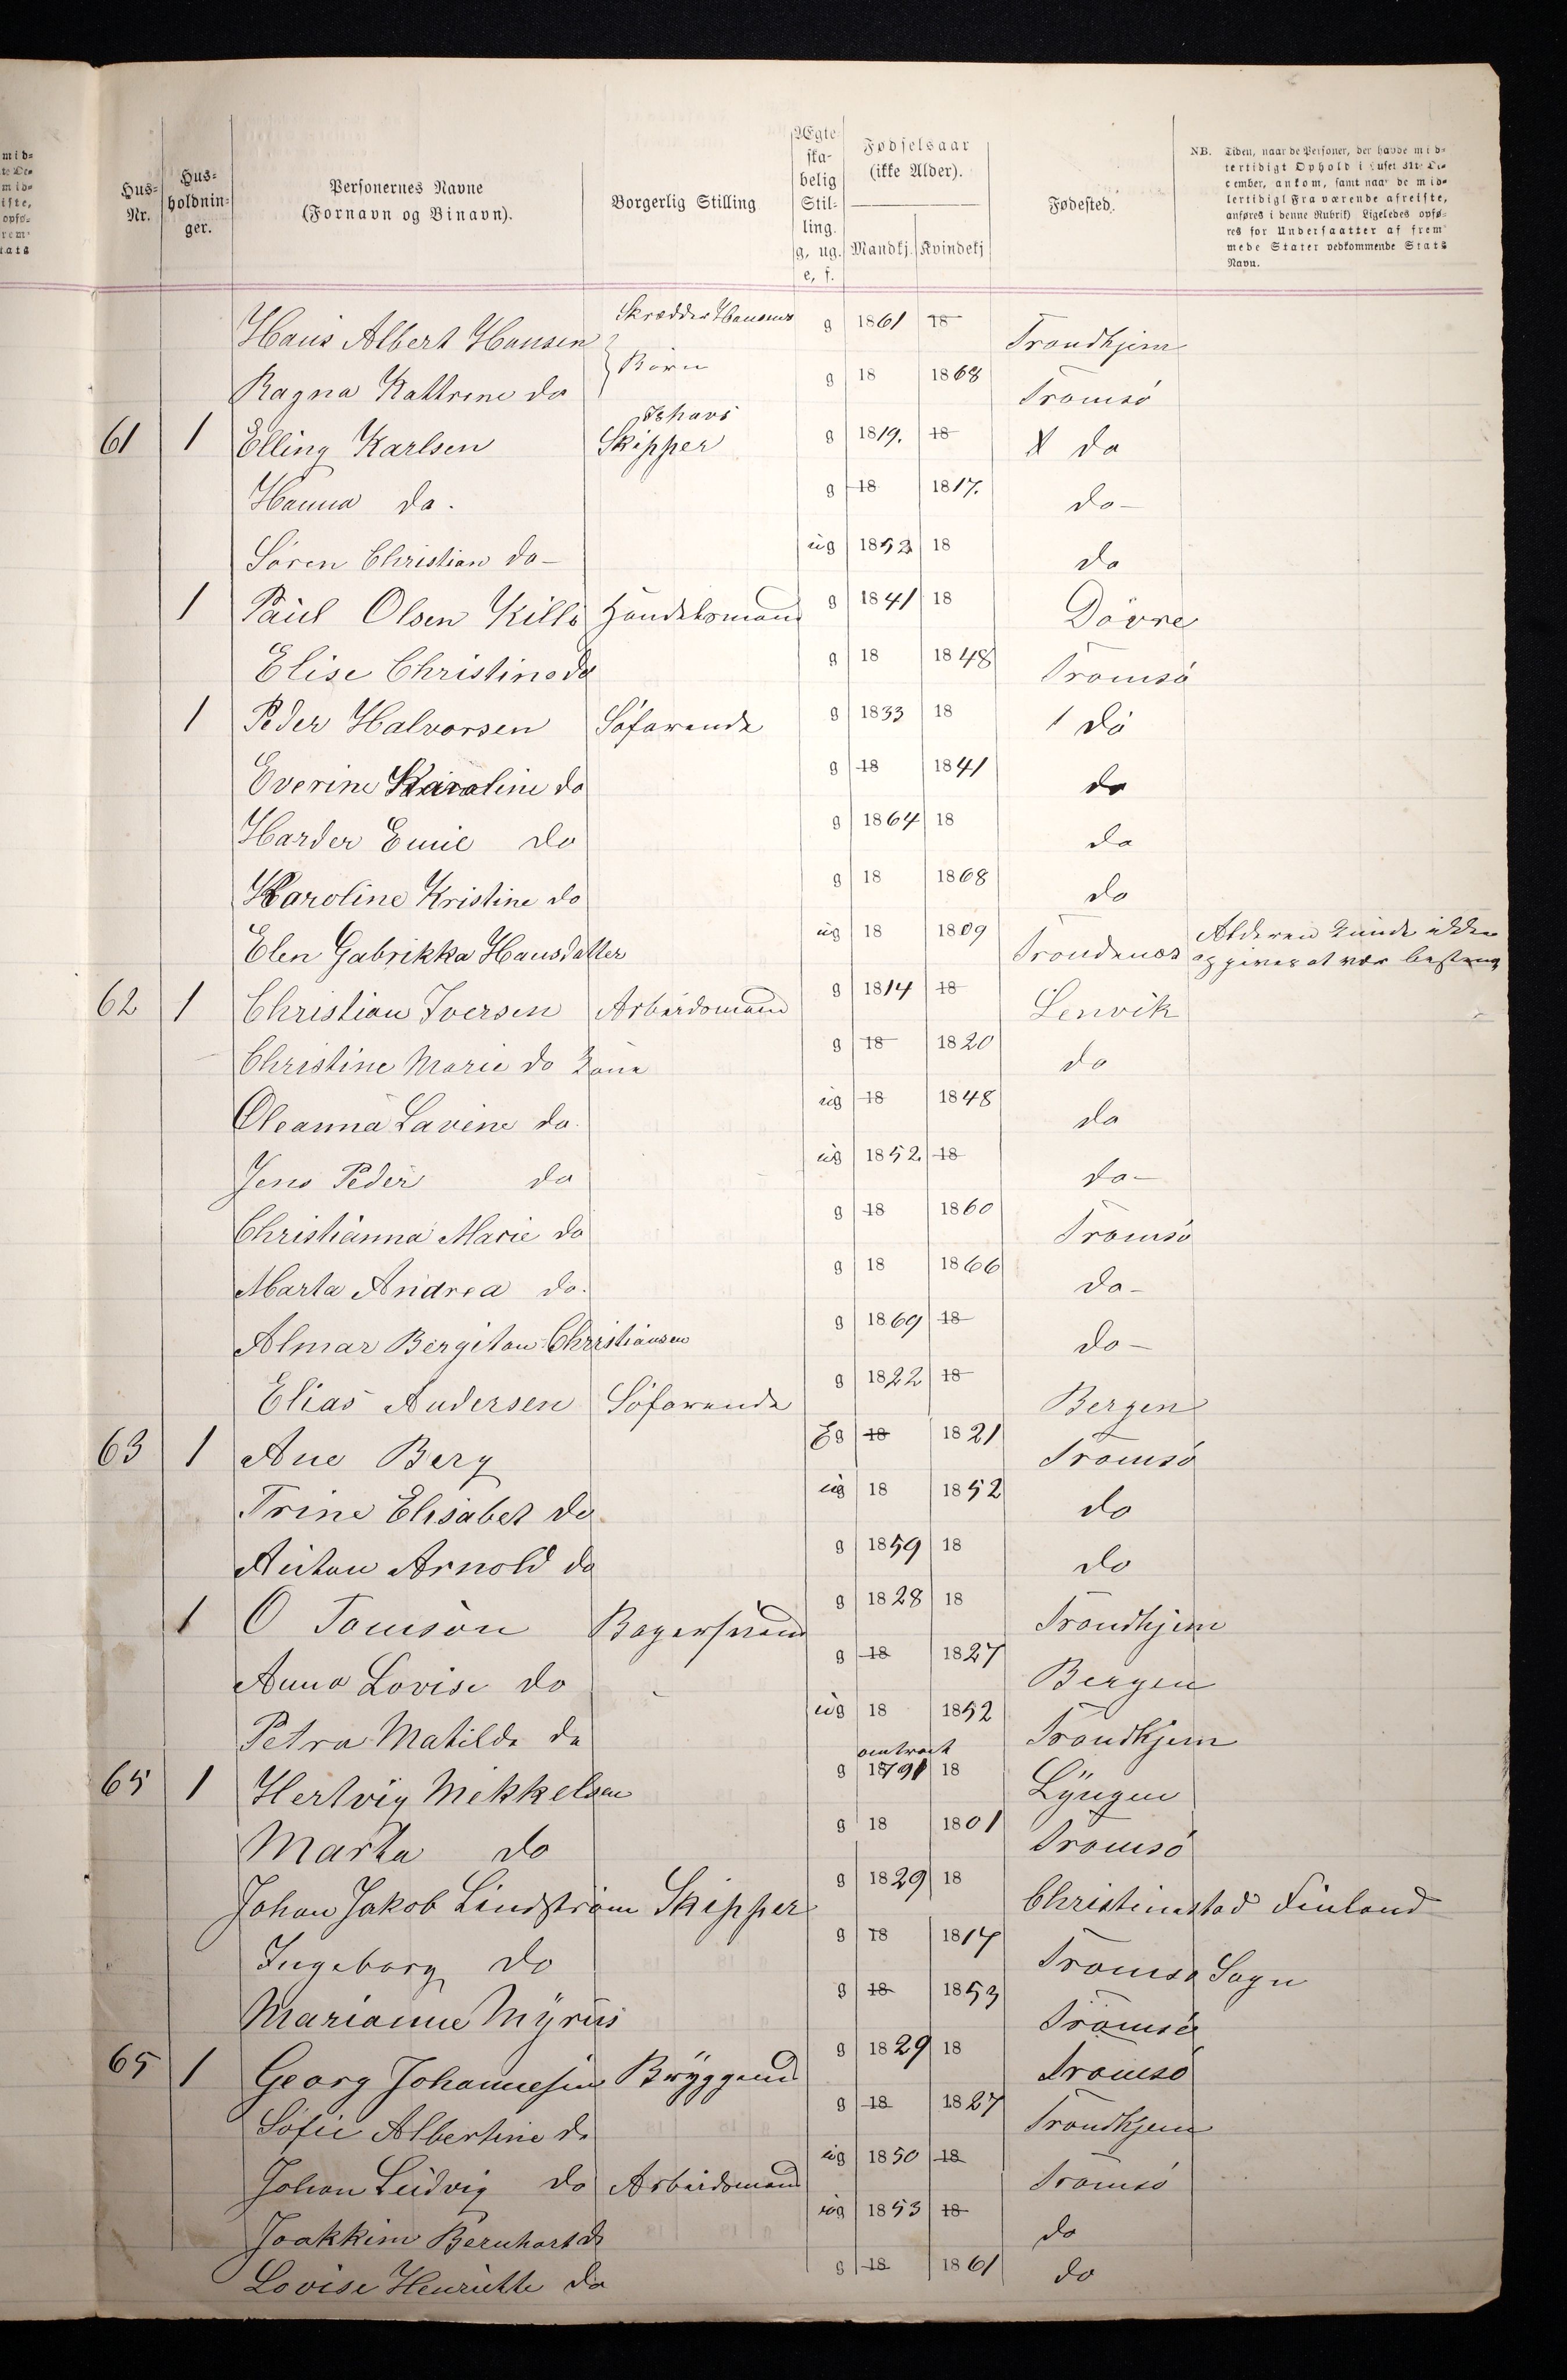 Hus-Nr.
Hus-holdnin-ger.
Personernes Navne
(Fornavn og Binavn).
Borgerlig Stilling
Ægte ska-belig Stil-ling. g, ug. e, f.
Fødselsaar
(ikke Alder).
Mandkj. Kvindekj
Fødested.
NB. Tiden, naar de Personer, der havde mid-
tertidigt Ophold i Huset 31te De-
cember, ankom, samt naar de mid-
lertidigt Fraværende afreiste,
anføres i denne Rubrik) Ligeledes opfø-
res for Undersaatter af frem
mede Stater vedkommende Stats
Navn.
Hans Albert Hansen Skrædder Hansens g 1861 18 Trondhjem
Ragna Kathrine do Børn g 18 1868 Tromsö
61 1 Elling Karlsen Ishavs Skipper g 1819. 18 do
Hanna do. g 18 1817. do-
Sören Christian do- ug 1853 18 do
1 Paul Olsen Killi Handelsmand g 1841 18 Dovre
Elise Christine do g 18 1848 Tromsö
1 Peder Halvorsen Söfarende g 1833 18 do
Everine Karoline do g 18 1841 do
Harder Emil do g 1864 18 do
Karoline Kristine do g 18 1868 do
Elen Gabrikka Hansdatter ug 18 1809 Trondenæs Alderen kunde ikke opgives at være bestemt
62 1 Christian Iversen Arbeidsmand g 1814 18 Lenvik
Christine Marie do Kone g 18 1820 do
Oleanna Lavine do. ug 18 1848 do
Jens Peder do ug 1852. 18 do-
Christianna Marie do g 18 1860 Tromsö
Marta Andrea do. g 18 1866 do-
Almar Bergiton Christiansen g 1869 18 do-
Elias Andersen Söfarende g 1822 18 Bergen
63 1 Ane Berg Eg 18 1821 Tromsö
Trine Elisabet do ug 18 1852 do
Anton Arnold do g 1859 18 do
1 O Tomson Bagersvend g 1828 18 Trondhjem
Anna Lovise do g 18 1827 Bergen
Petra Matilde do ug 18 1852 Trondhjem
65 1 Hertvig Mekkelsen g omtrent 1791 18 Lyngen
Marta do g 18 1801 Tromsö
Johan Jakob Lindström Skipper g 1829 18 Christinestad Finland
Ingeborg do g 18 1817 Tromsö Sogn
Marianne Myrus g 18 1853 Tromsö
65 1 Georg Johannesen Bryggand g 1829 18 Tromsö
Sofie Albertine do g 18 1827 Trondhjem
Johan Ludvig do Arbeidsmand ug 1850 18 Tromsö
Joakkim Bernhart do ug 1853 18 do
Lovise Henriette do g 18 1861 do